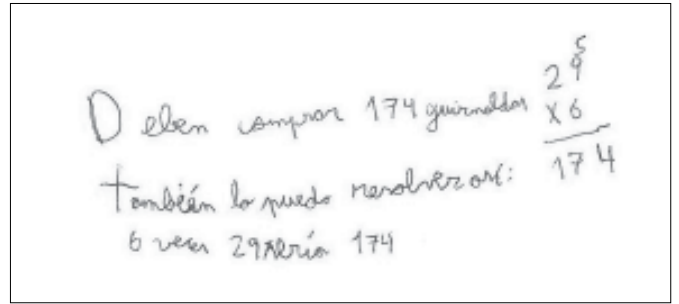 Deben comprar 174 guirnaldas
5
29
x 6
174
También lo puedo resolver así:
6 veces 29 sería 174